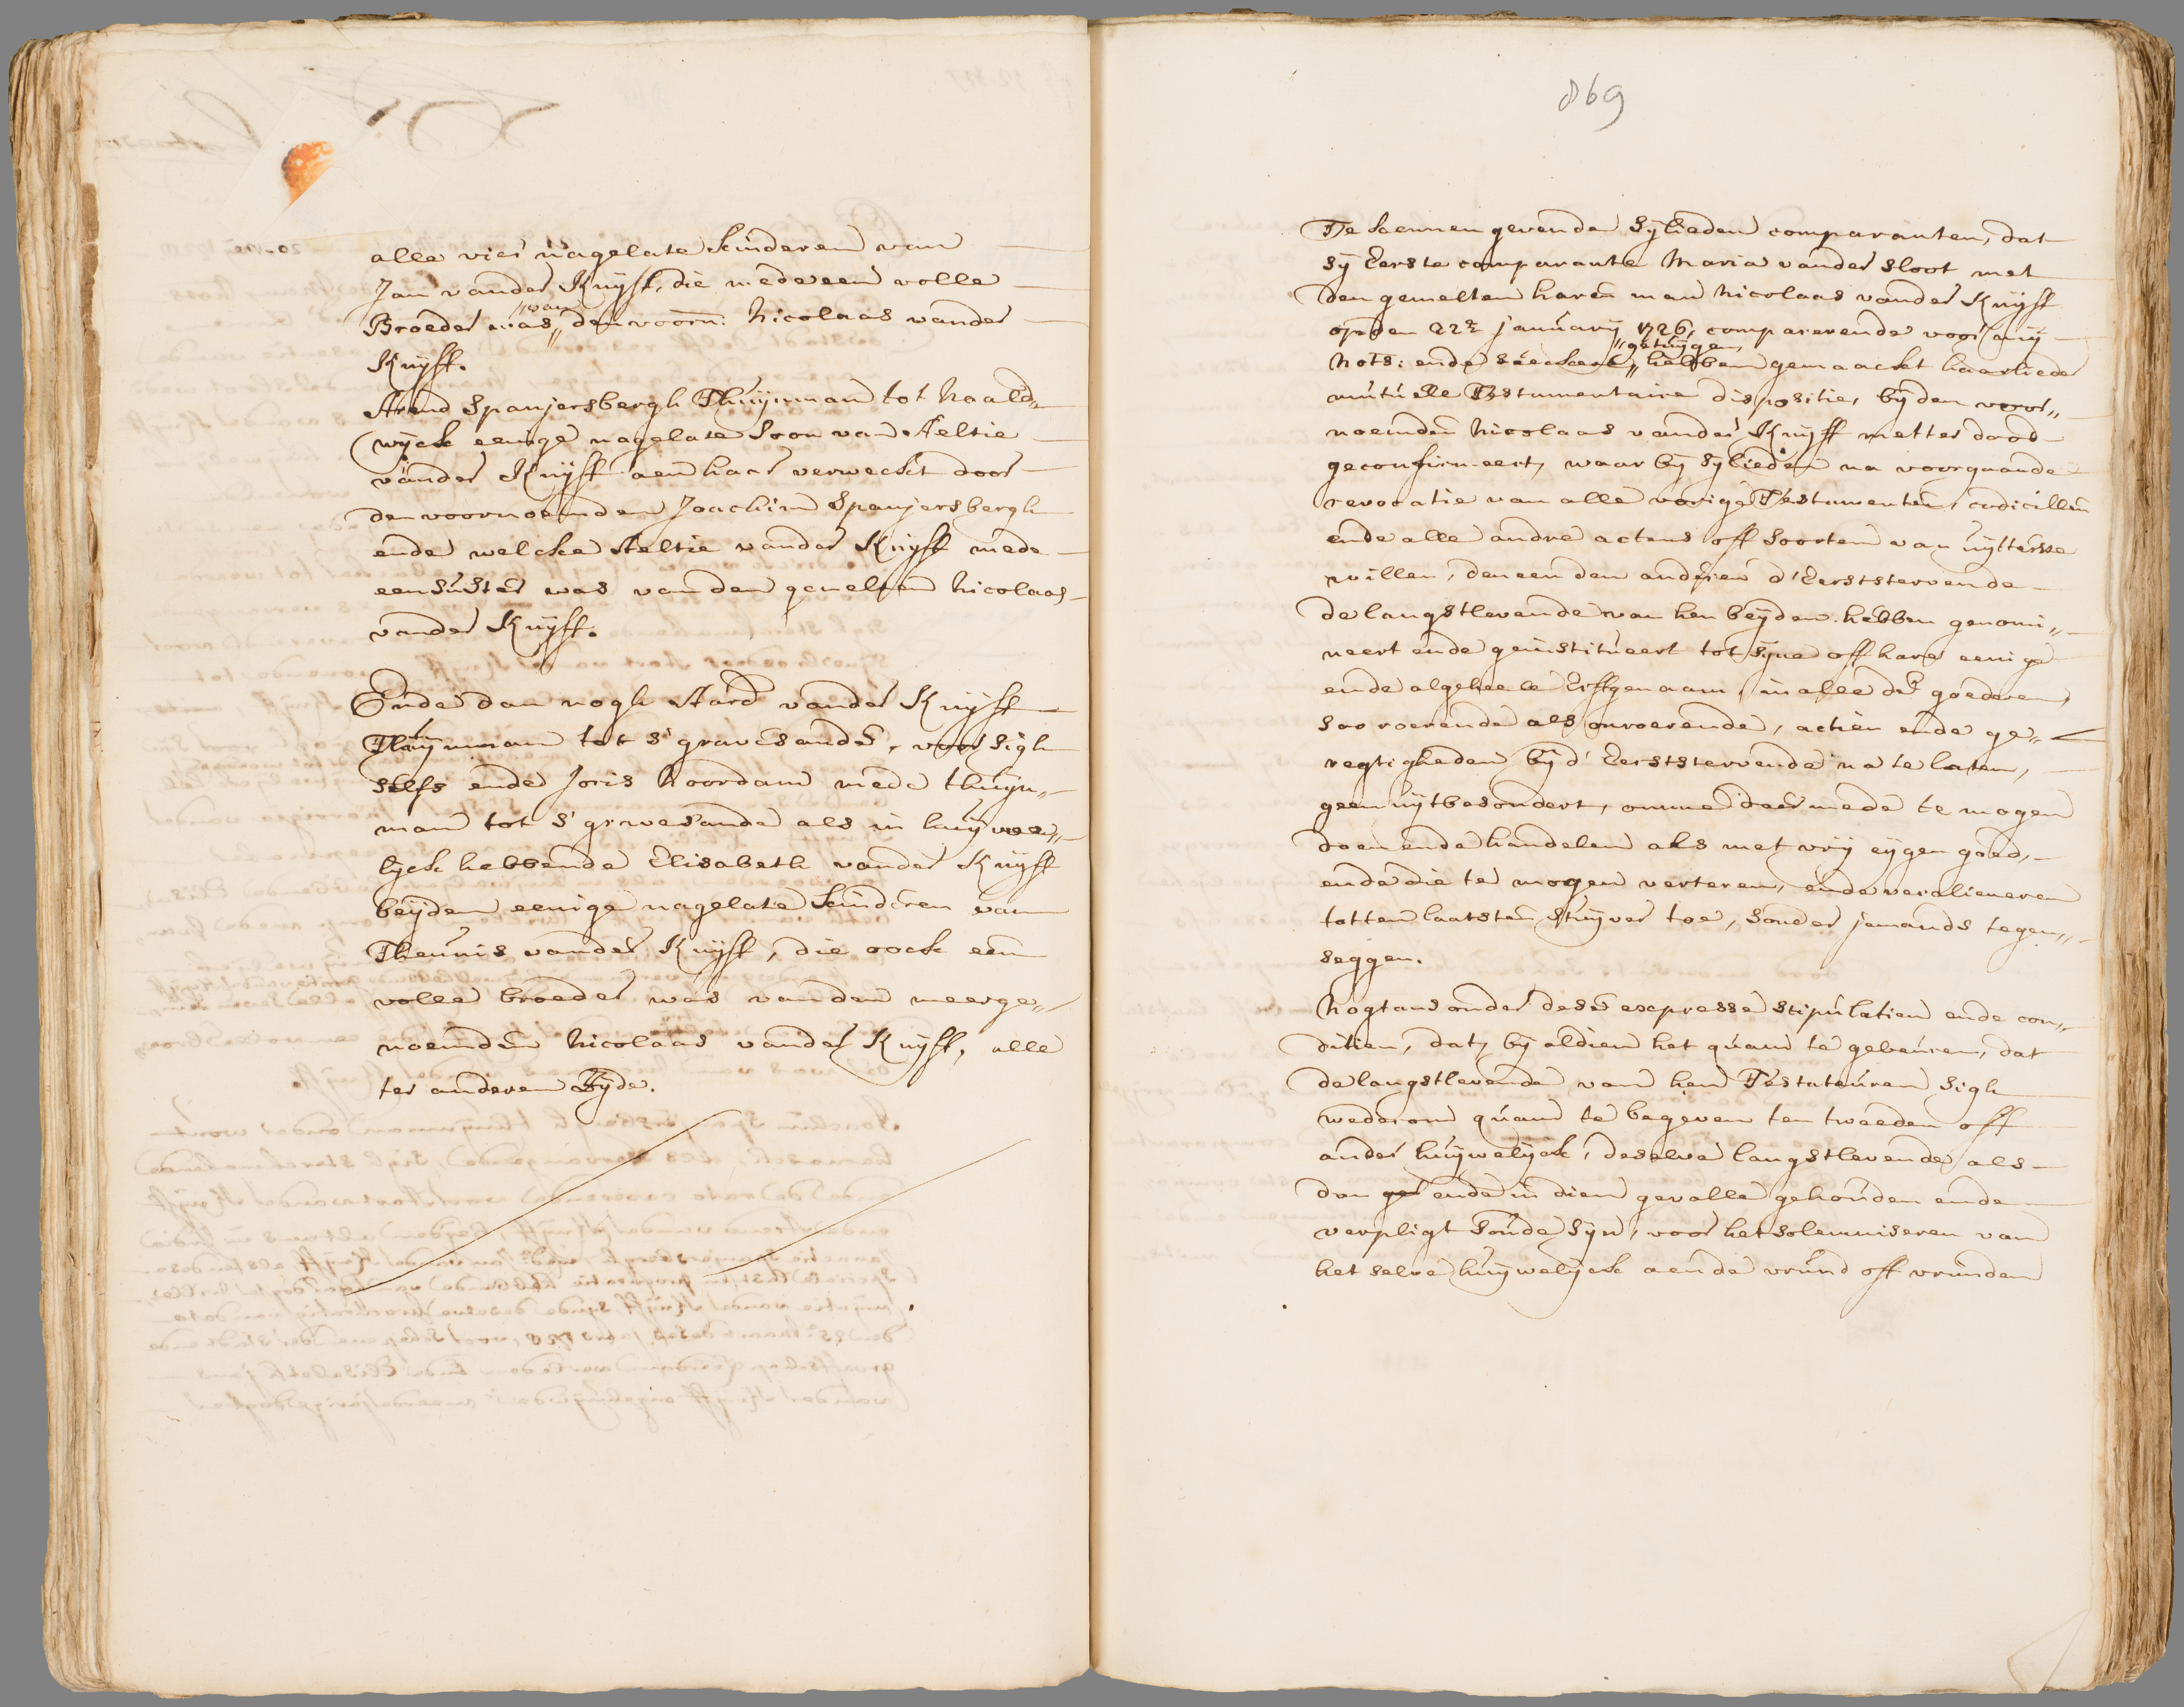 alle vier nagelate kinderen van
Jan vander Kuijff, die mede een volle
Broeder was „van„ den voorn: Nicolaas vander
Kuijff.
Arend Spanjersbergh Thuijnman tot Naald„
wijck eenige nagelate Soon van Aeltie
vander Kuijff aen haar verweckt door
den voornoemden Joachim Spanjersbergh
ende welcke Aeltie vander Kuijff mede
een suster was van den gemelten Nicolaas
vander Kuijff.
Ende dan nogh Aard vander Kuijff
Thuijnman tot s'gravesande, voor sigh
selfs ende Joris Noordam mede thuijn„
man tot s'gravesande als in huijwe„
lijck hebbende Elisabeth vander Kuijff
beijden eenige nagelate kinderen van
Theunis vander Kuijff, die oock een
volle broeder was van den meerge„
noemden Nicolaas vander Kuijff, alle
ter anderen Zijde.
869
Te kennen gevende Sijlieden comparanten, dat
sij Eerste comparante Maria vander Sloot met
den gemelten haren man Nicolaas vander Kuijff
op den 22e januarij 1726, comparerende voor mij
Nots: ende seeckere „getuijgen„ hebben gemaackt haarlieder
mutuelle Testamentaire dispositie, bij den voor„
noemden Nicolaas vander Kuijff metter dood
geconfirmeert, waar bij Sijlieden na voorgaande
revocatie van alle vorige Testamenten, codicillen
ende alle andre actens off soorten van uijtterste
willen, den een den anderen d'Eerststervende
de langstlevende van hen beijden hebben genomi„
neert ende geinstitueert tot sijne off hare eenige
ende algeheele Erffgenaam, in alle de goederen,
soo roerende als onroerende, actien ende ge„
regtigheden bij d'Eerststervende na te laten,
geen uijtbesondert, omme daer mede te mogen
doen ende handelen als met vrij eijgen goed,
ende die te mogen verteren, ende veralieneren
totten laatsten stuijver toe, sonder jemands tegen„
seggen.
Nogtans onder dese expresse stipulatien ende con„
ditien, dat, bij aldien het quam te gebeuren, dat
de langstlevende van hen Testateuren sigh
wederom quam te begeven ten tweeden off
ander huijwelijck, deselve langstlevende als
dan ende in dien gevalle gehouden ende
verpligt soude sijn, voor het solemniseren van
het selve huijwelijck aen de vrund off vrunden